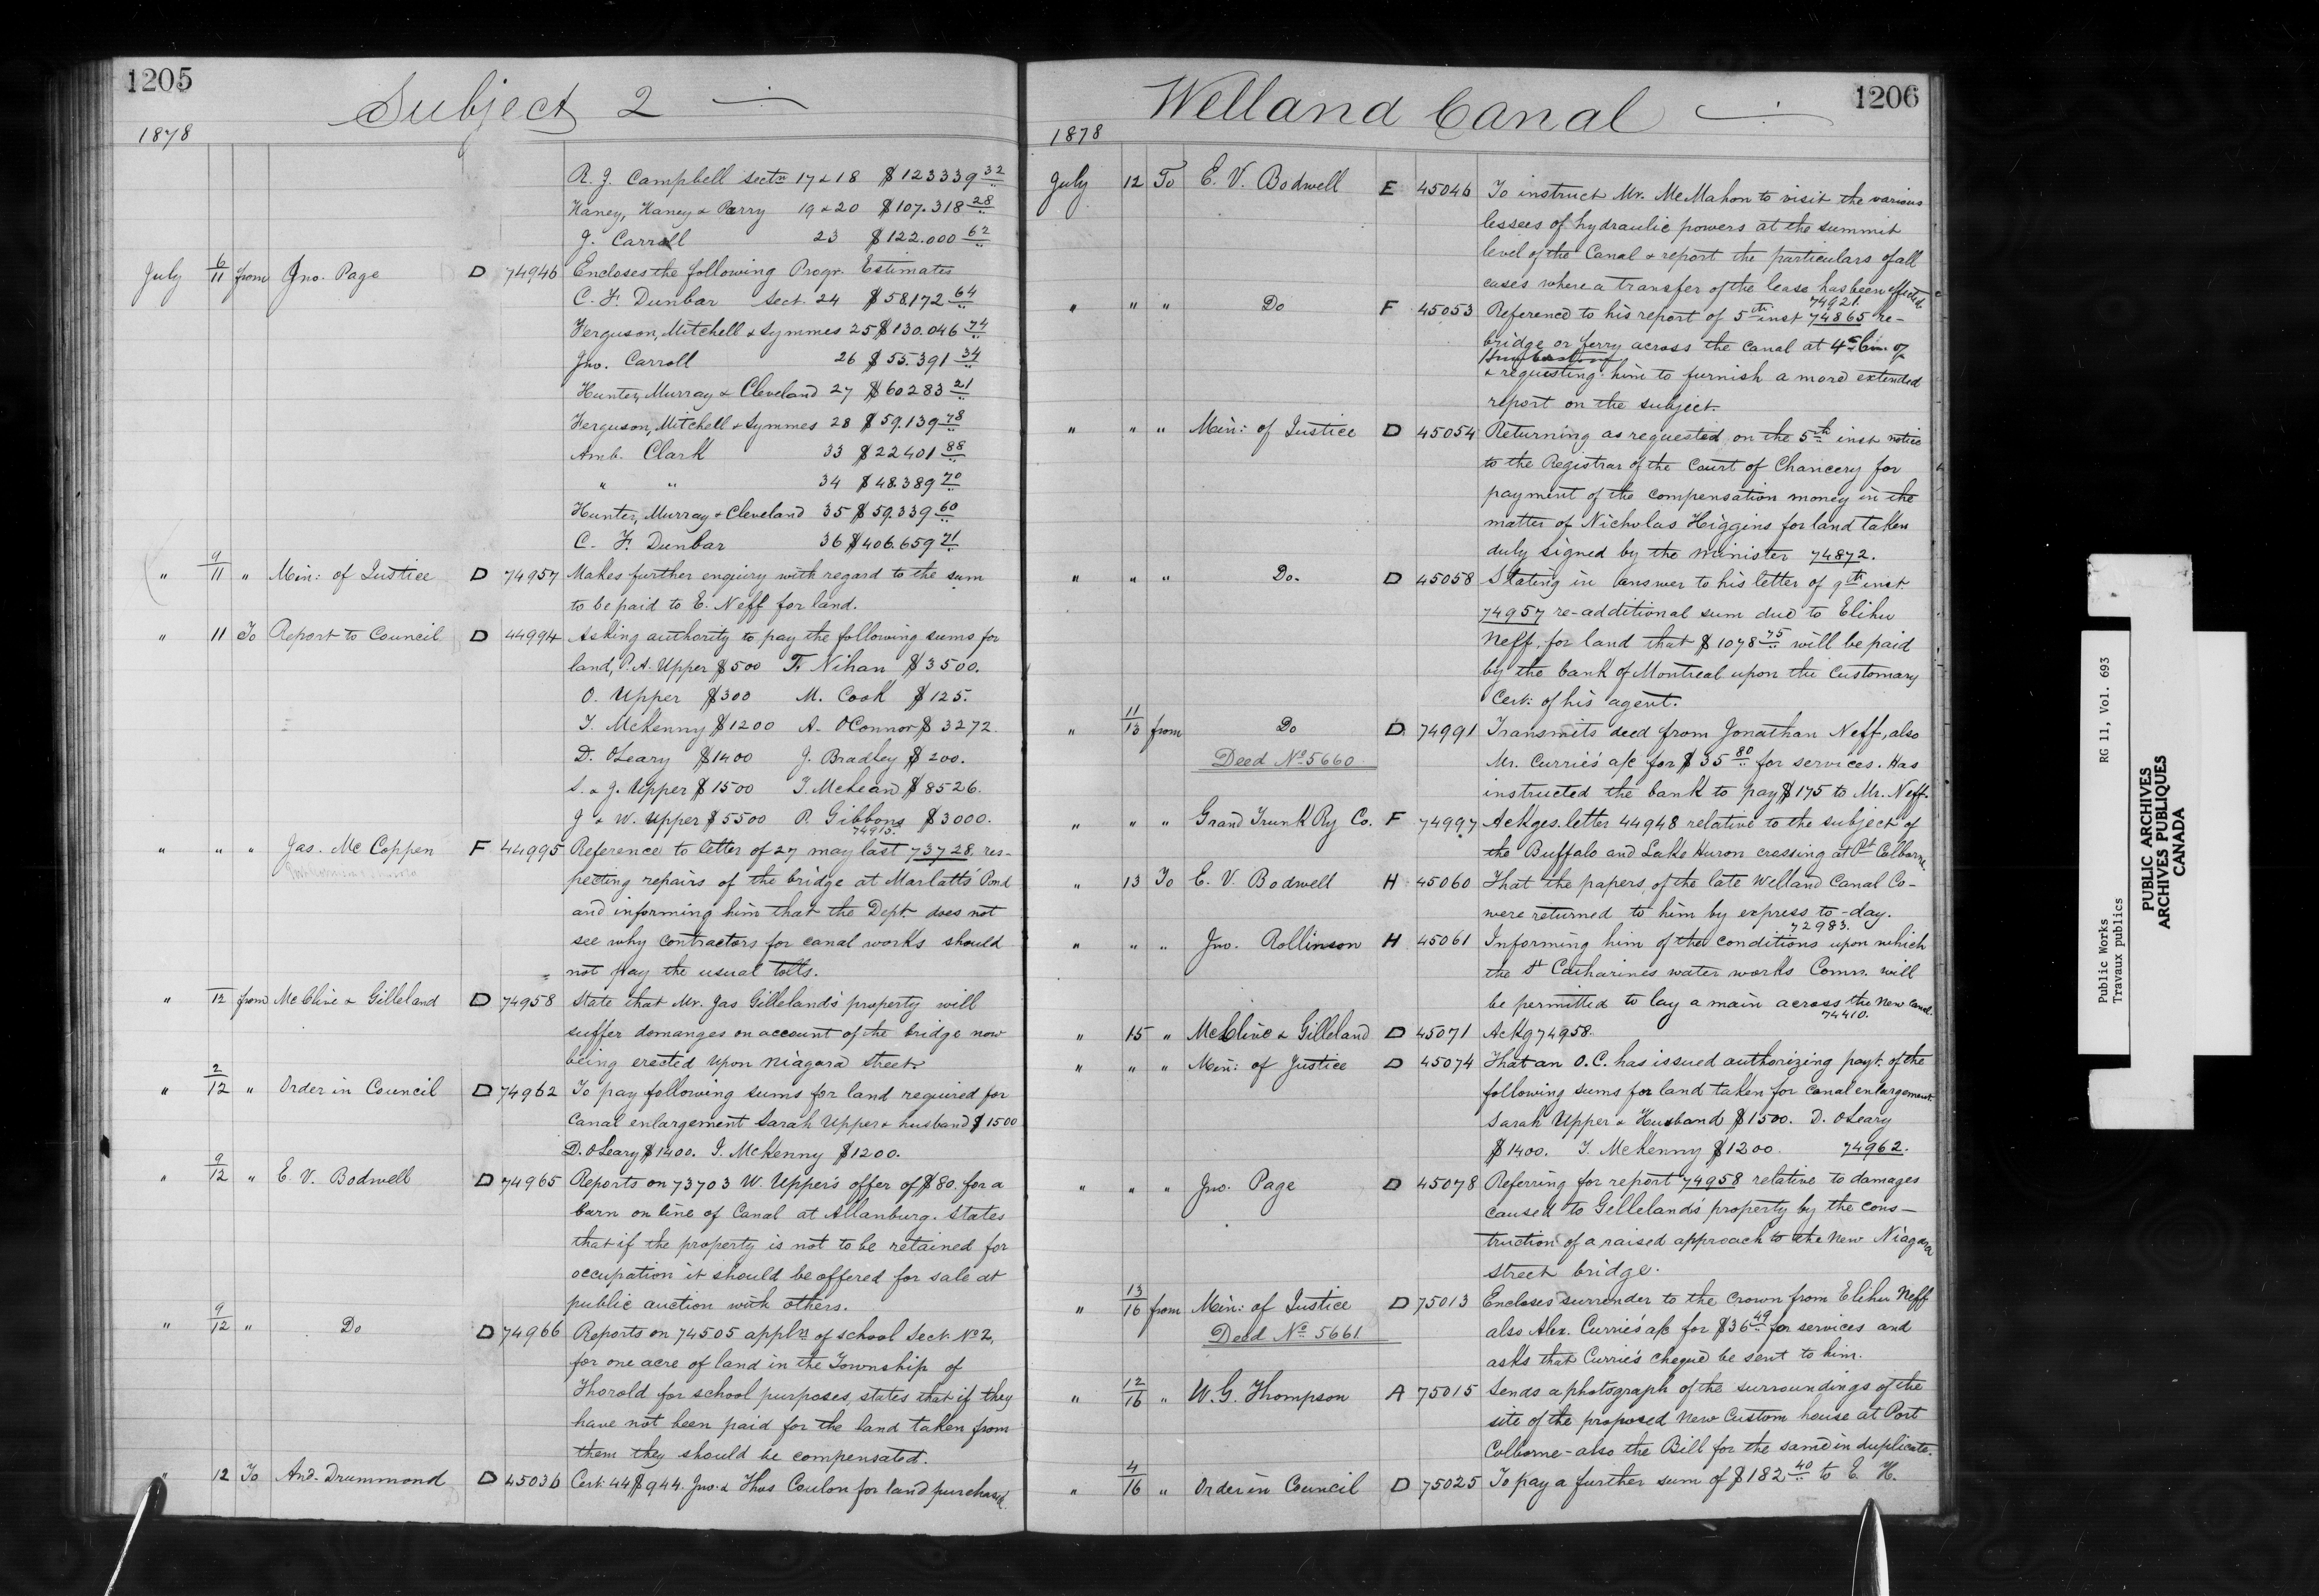 1205
Subject 2
1878
R. J. Campbell Sectn 17 & 18 $123339 32
Haney, Haney & Parry 19 & 20 $107.318 28
J. Carroll 23 $122.000 62
July 6/11 from Jno. Page D 74946 Encloses the following Progr. Estimates
C. F. Dunbar Sect. 24 $58,172 64
Ferguson, Mitchell & Symmes 25 $130.046 74
Jno. Carroll 26 $55.391 34
Hunter, Murray & Cleveland 27 $60283 21
Ferguson, Mitchell & Symmes 28 $59.139 78
Amb. Clark 33 $22401 88
" " 34 $48.389 70
Hunter, Murray & Cleveland 35 $59.339 60
C. F. Dunbar 36 $406.659 71
" 9/11 " Min: of Justice D 74957 Makes further enquiry with regard to the sum
to be paid to E. Neff for land.
" 11 To Report to Council D 44994 Asking authority to pay the following sums for
land, P. A. Upper $500 F. Nihan $3500.
O. Upper $300 M. Cook $125.
T. McKenny $1200 A. OConnor $3272.
D. OLeary $1400 J. Bradley $200.
S. & J. Upper $1500 T. McLean $8526.
J & W. Upper $5500 P. Gibbons $3000.
74915.
" " " Jas. Mc Coppen F 44995 Reference to letter of 27 may last 73728. res-
pecting repairs of the bridge at Marlatts' Pond
and informing him that the Dept. does not
see why contractors for canal works should
not pay the usual tolls.
" 12 from McClive & Gilleland D 74958 State that Mr. Jas Gilleland's property will
suffer domanges on account of the bridge now
being erected upon Niagara Street.
" 2/12 " Order in Council D 74962 To pay following sums for land required for
Canal enlargement Sarah Upper & husband $1500
D. OLeary $1400. T. McKenny $1200.
" 9/12 " E. V. Bodwell D 74965 Reports on 73703 W. Upper's offer of $80. for a
barn on line of Canal at Allanburg. States
that if the property is not to be retained for
occupation it should be offered for sale at
public auction with others.
" 9/12 " Do D 74966 Reports on 74505 appln of School Sect. No 2,
for one acre of land in the Township of
Thorold for school purposes, states that if they
have not been paid for the land taken from
them they should be compensated.
" 12 To And. Drummond D 45036 Cert. 44 $944. Jno. & Thos Coulon for land purchased.
Welland Canal
1206
1878
July 12 To E. V. Bodwell E 45046 To instruct Mr. McMahon to visit the various
lessees of hydraulic powers at the summit
level of the Canal & report the particulars of all
cases where a transfer of the lease has been effected.
74921.
" " " Do F 45053 Reference to his report of 5th inst 74865 re-
bridge or ferry across the canal at 4th Con. of
Humberstone
& requesting him to furnish a more extended
report on the subject.
" " " Min: of Justice D 45054 Returning as requested on the 5th inst notice
to the Registrar of the Court of Chancery for
payment of the compensation money in the
matter of Nicholas Higgins for land taken
duly signed by the minister 74872.
" " " Do. D 45058 Stating in answer to his letter of 9th inst.
74957 re-additional sum due to Elihu
Neff, for land that $1078 75 will be paid
by the bank of Montreal upon the Customary
Cert: of his agent.
" 11/13 from Do D. 74991 Transmits deed from Jonathan Neff, also
Deed No 5660 Mr. Currie's a/c for $35 80 for services. Has
instructed the bank to pay $175 to Mr. Neff.
" " " Grand Trunk Ry Co. F 74997 Ackges. letter 44948 relative to the subject of
the Buffalo and Lake Huron crossing at Pt Colborne.
" 13 To E. V. Bodwell H 45060 That the papers of the late Welland Canal Co-
were returned to him by express to-day.
72983.
" " " Jno. Rollinson H 45061 Informing him of the conditions upon which
the St Catharines water works Comn. will
be permitted to lay a main across the New Canal.
74410.
" 15 " McClive & Gilleland D 45071 Ackg 74958.
" " " Min: of Justice D 45074 That an O.C. has issued authorizing payt. of the
following sums for land taken for canal enlargement.
Sarah Upper & Husband $1500. D. OLeary
$1400. T. McKenny $1200. 74962.
" " " Jno. Page D 45078 Referring for report 74958 relative to damages
caused to Gelleland's property by the cons-
truction of a raised approach to the New Niagara
Street bridge.
" 13/16 from Min: of Justice D 75013 Encloses surrender to the Crown from Elihu Neff
Deed No 5661 also Alex. Currie's a/c for $36 49 for services and
asks that Currie's cheque be sent to him.
" 12/16 " W. G. Thompson A 75015 Sends a photograph of the surroundings of the
site of the proposed New Custom house at Port
Colborne - also the Bill for the same in duplicate.
" 4/16 " Order in Council D 75025 To pay a further sum of $182 40 to E. H.
Public Works RG 11, Vol. 693
Travaux publics
PUBLIC ARCHIVES
ARCHIVES PUBLIQUES
CANADA